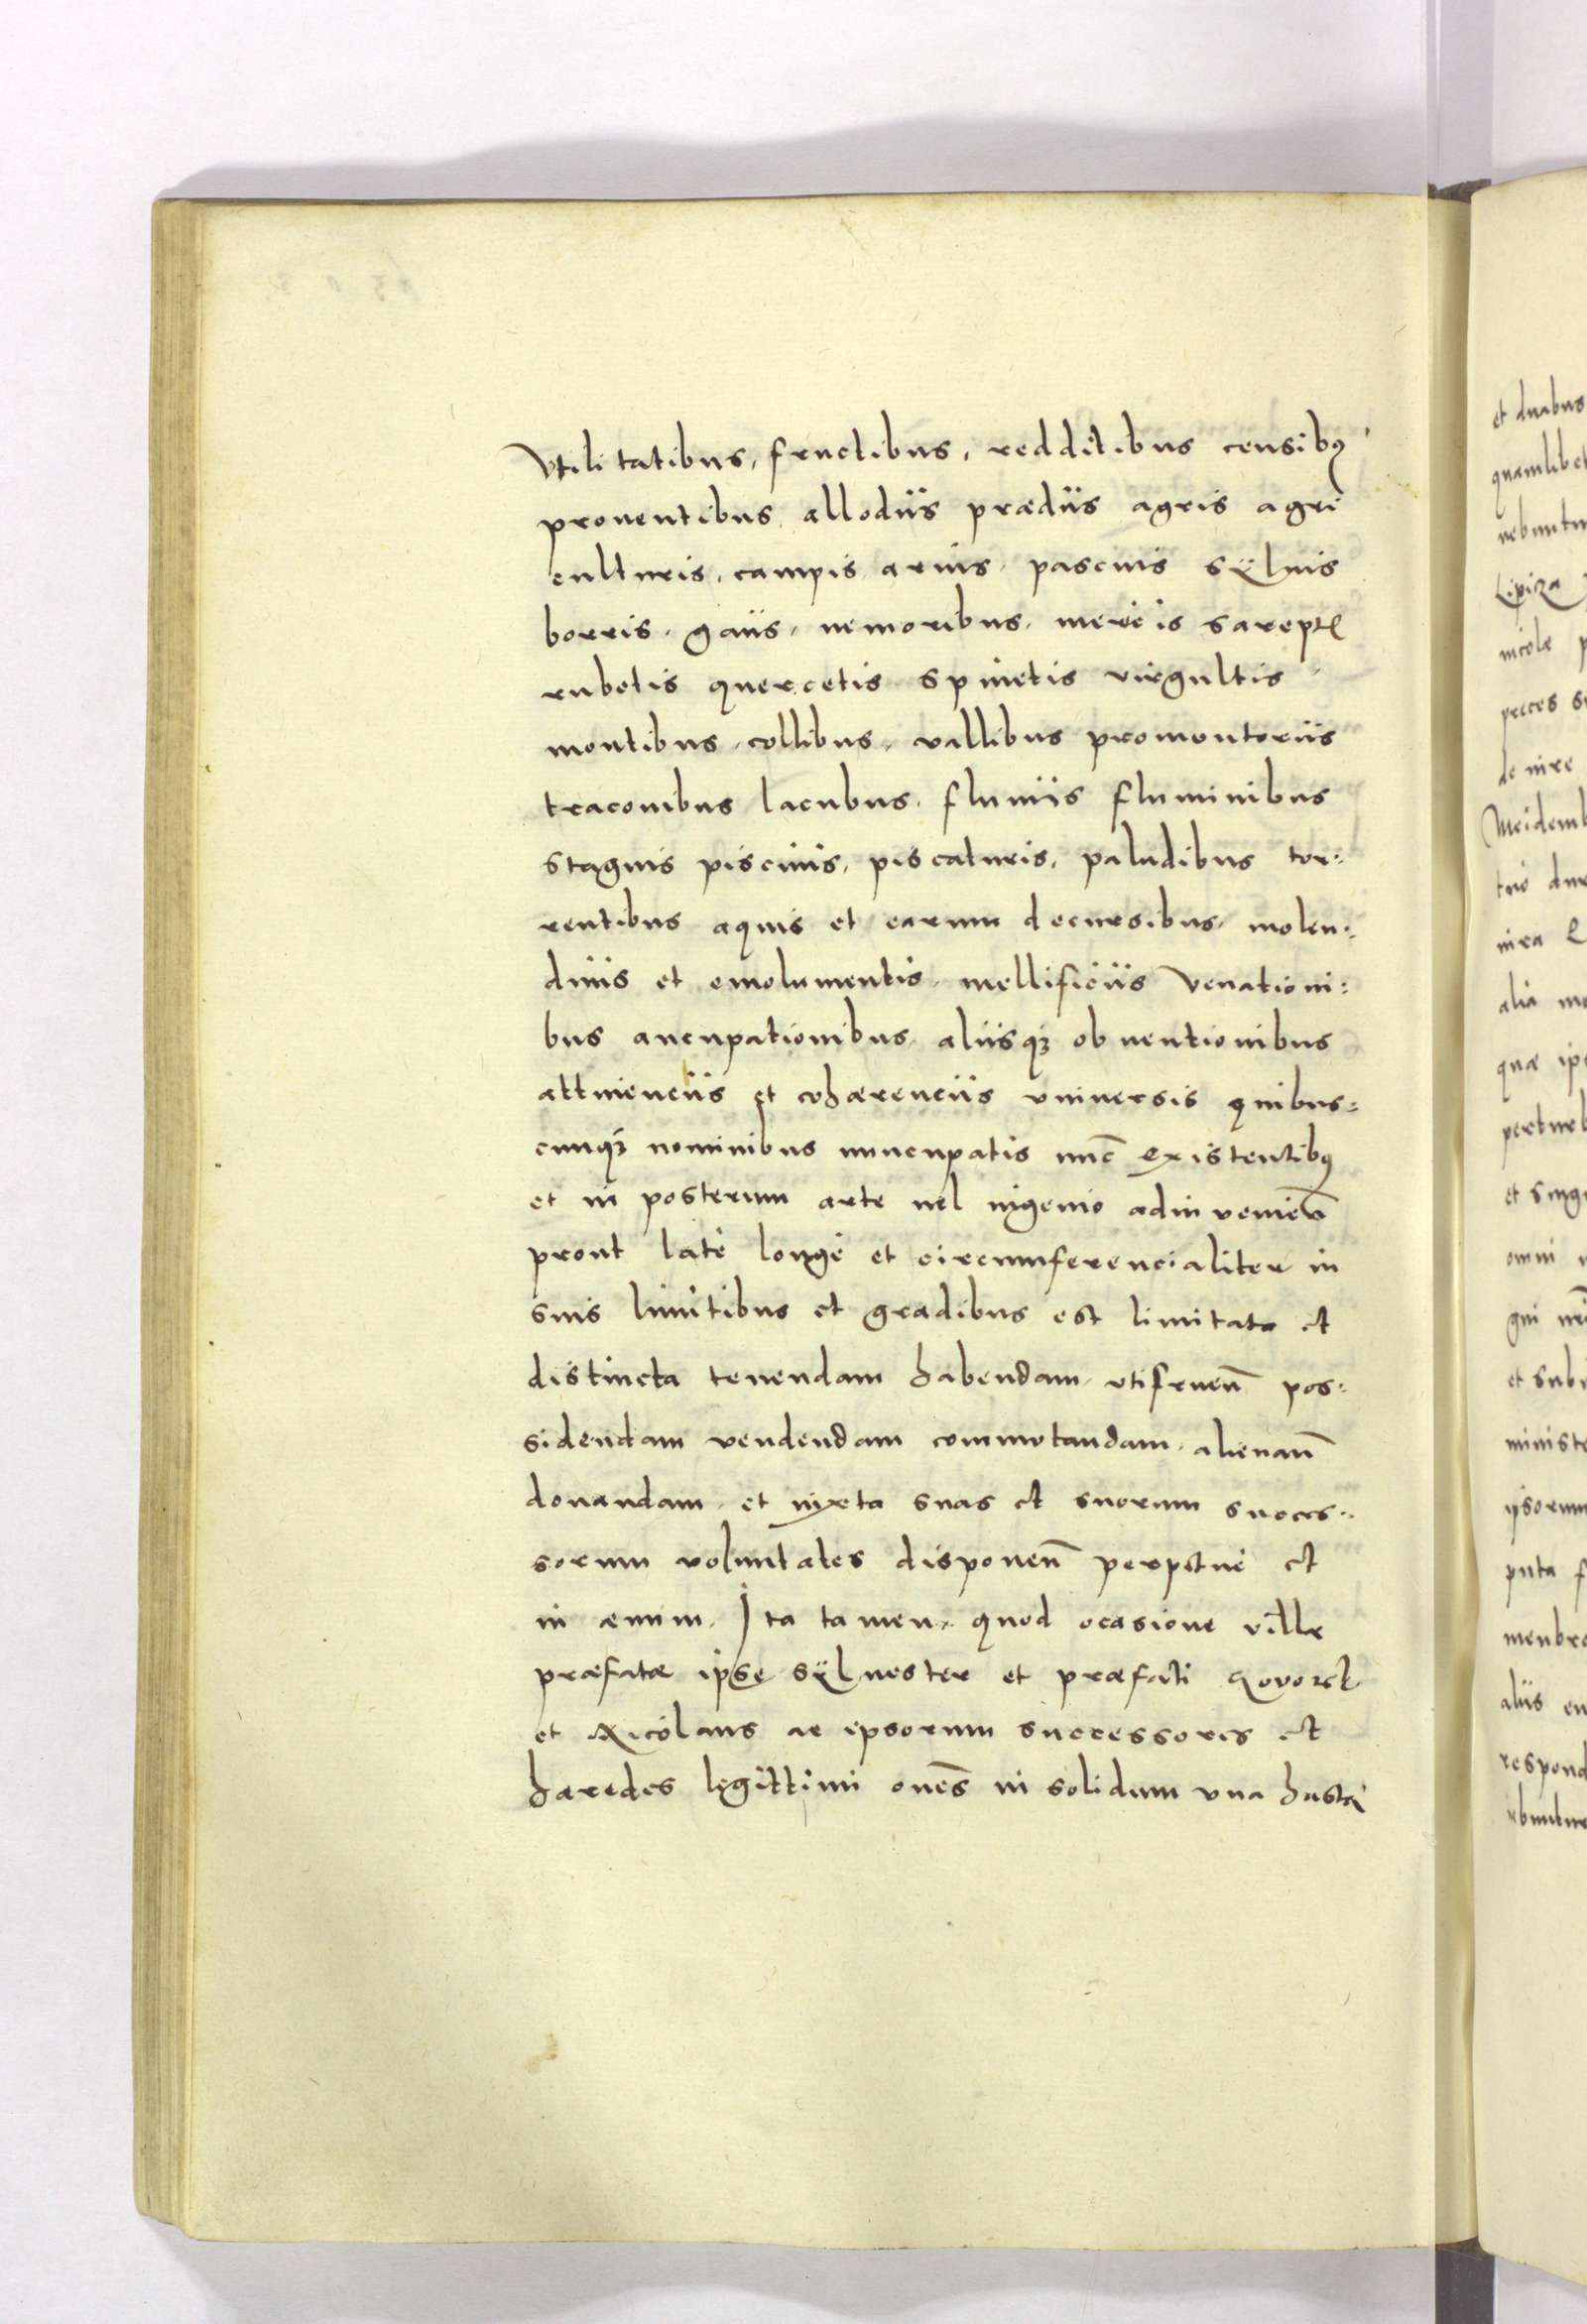 Vtilitatibus, fructibus, redditibus censibꝰ
prouentibus allodiis prædiis agris agri
culturis, campis aruis, pascuis sÿluis
borris, gaiis, nemoribus, mericis
rubetis quercetis spinetis virgultis
montibus, collibus, vallibus promontoriis
traconibus lacubus, fluuiis fluminibus
stagnis piscinis, piscaturis, paludibus tor:
rentibus aquis et earum decursibus, molen:
dinis et emolumentis, mellificiis Venationi:
bus aucupationibus, aliisqꝫ obuentionibus
attinenciis et cohærenciis vniuersis quibus:
cunqꝫ nominibus nuncupatis nuc̄ existentibꝰ
et in posterum arte uel ingenio adinuenien̄
prout latè longè et circumferencialiter in
suis limitibus et gradibus est limitata et
distincta tenendam habendam, vtifruen̄ pos:
sidendam vendendam commutandam, alienan̄
donandam, et iuxta suas et suorum succes:
sorum voluntates disponen̄ perpetuè et
in æuum, Ita tamen, quod ocasione villæ
præfatæ ipse sÿluester et præfati
et Nicolaus ac ipsorum successores et
hæredes legittimi om̄es in solidum vna hasta
et duabus
quamlibet
Lipiza
nicolæ
de iure
alia
quæ
omni